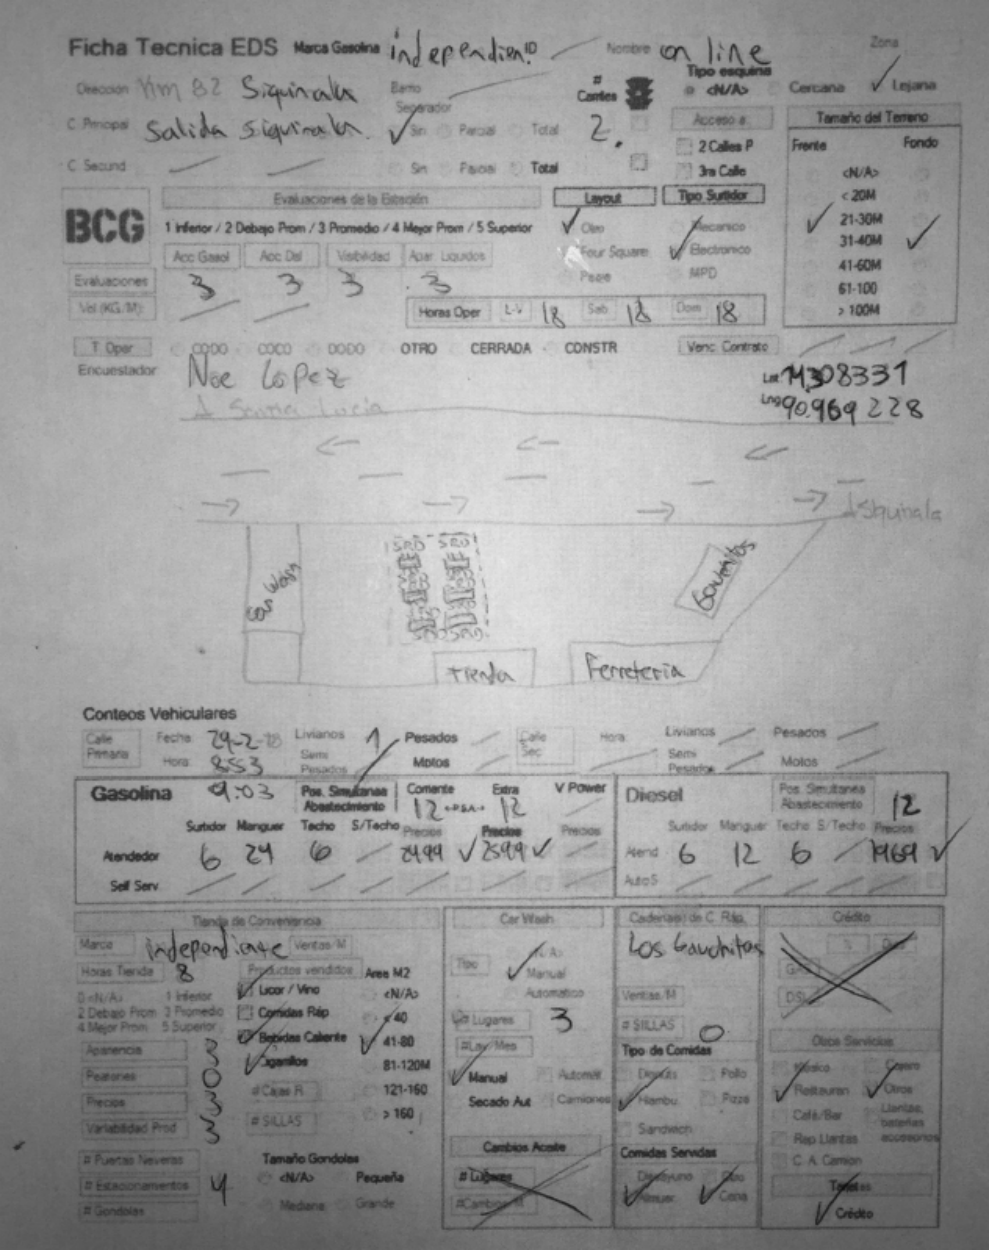 Ficha Tecnica EDS Marca Gasolina independien. ID Nombre on line Zona
Dirección Km 82 Siquinala Barrio # Carriles Tipo esquina <N/A> Cercana Lejana
Separador
C. Principal Salida Siquinala. Sin Parcial Total 2. Acceso a Tamaño del Terreno
2 Calles P Frente Fondo
C. Secund Sin Parcial Total 3ra Calle <N/A>
Evaluaciones de la Estación Layout Tipo Surtidor < 20M
BCG 1 Inferior / 2 Debajo Prom / 3 Promedio / 4 Mejor Prom / 5 Superior Otro Mecanico 21-30M
Four Square Electronico 31-40M
Acc Gasol Acc Dsl Visibilidad Apar. Liquidos MPD 41-60M
Evaluaciones 3 3 3 3 61-100
Vol (KG/M) Horas Oper L-V 18 Sab 18 Dom 18 > 100M
T. Oper CODO COCO DODO OTRO CERRADA CONSTR Venc. Contrato
Encuestador Noe Lopez Lat. 14308331
A Santa Lucia Lng 90.969 228
Car Wash Gauchitos
Tienda Ferreteria
Conteos Vehiculares
Calle Primaria Fecha Livianos Pesados Calle Sec Hora Livianos Pesados
Hora: 8:53 Semi Pesados Motos Semi Pesados Motos
Gasolina 9:03 Pos. Simultanea Abastecimiento Corriente 12 Extra 12 V Power Diesel Pos. Simultanea Abastecimiento 12
Surtidor Manguer Techo S/Techo Precios Precios Precios Surtidor Manguer Techo S/Techo Precios
Atendedor 6 24 6 2499 2599 Atend 6 12 6 1969
Self Serv. Auto S
Tienda de Conveniencia Car Wash Cadenas de C. Ráp. Crédito
Marca independiente Ventas/M <N/A> Los Gauchitos %
Horas Tienda 8 Productos vendidos Area M2 Tipo Manual GAS
0 <N/A> 1 Inferior Licor / Vino <N/A> Automatico Ventas/M DSL
2 Debajo Prom 3 Promedio Comidas Ráp < 40 # Lugares 3
4 Mejor Prom 5 Superior Bebidas Caliente 41-80 # SILLAS 0
Apariencia 3 Cigarrillos 81-120M #Lav/Mes Tipo de Comidas Otros Servicios
Peatones 0 # Cajas R. 121-160 Manual Automat. Donuts Pollo Kiosko Cajero
Precios 3 # SILLAS > 160 Secado Aut Camiones Hambu. Pizza Restauran Otros
Variabilidad Prod 3 Sandwich Café/Bar Llantas, baterias accesorios
# Puertas Neveras Tamaño Gondolas Cambios Aceite Comidas Servidas Rep Llantas
# Estacionamientos 4 <N/A> Pequeña # Lugares Desayuno Otro C. A. Camion
# Gondolas Mediana Grande #Cambios/M Almuer Cena Tarjetas
Crédito